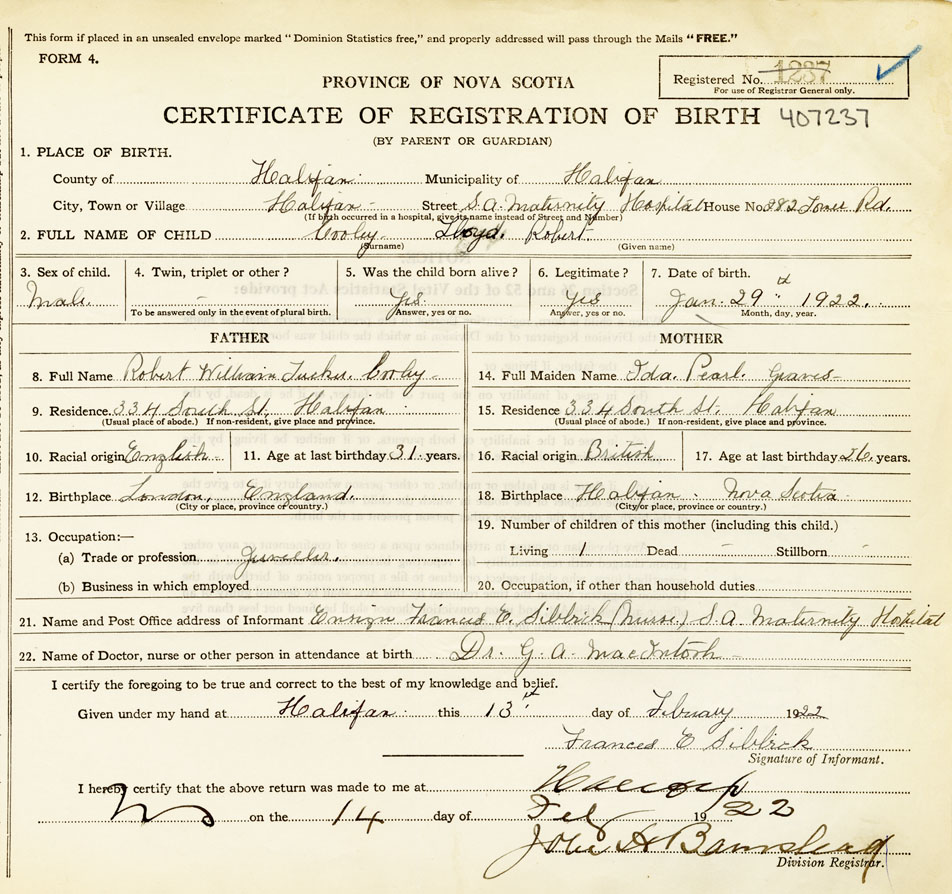 This form if placed in an unsealed envelope marked "Dominion Statistics free," and properly addressed will pass through the Mails "FREE."
FORM 4.
Registered No. 1287
For use of Registrar General only.
PROVINCE OF NOVA SCOTIA
CERTIFICATE OF REGISTRATION OF BIRTH 407237
(BY PARENT OR GUARDIAN)
1. PLACE OF BIRTH.
County of Halifax Municipality of Halifax
City, Town or Village Halifax Street S.A. Maternity Hospital House No. 282 Tower Rd.
(If birth occurred in a hospital, give its name instead of Street and Number)
2. FULL NAME OF CHILD Cooley Lloyd Robert.
(Surname) (Given name)
3. Sex of child. 4. Twin, triplet or other? 5. Was the child born alive? 6. Legitimate? 7. Date of birth.
Male. - Yes. Yes Jan. 29th 1922.
To be answered only in the event of plural birth. Answer, yes or no. Answer, yes or no. Month, day, year.
FATHER MOTHER
8. Full Name Robert William Tucker Cooley 14. Full Maiden Name Ida. Pearl. Graves
9. Residence. 334 South St. Halifax 15. Residence 334 South St. Halifax
(Usual place of abode.) If non-resident, give place and province. (Usual place of abode.) If non-resident, give place and province.
10. Racial origin English 11. Age at last birthday 31 years. 16. Racial origin British 17. Age at last birthday 26. years.
12. Birthplace London, England. 18. Birthplace Halifax. Nova Scotia
(City or place, province or country.) (City or place, province or country.)
13. Occupation:— 19. Number of children of this mother (including this child.)
(a) Trade or profession Jeweller. Living 1 Dead - Stillborn -
(b) Business in which employed 20. Occupation, if other than household duties
21. Name and Post Office address of Informant Ensign Frances E. Sibbick (Nurse.) S.A. Maternity Hospital
22. Name of Doctor, nurse or other person in attendance at birth Dr. G. A. MacIntosh
I certify the foregoing to be true and correct to the best of my knowledge and belief.
Given under my hand at Halifax this 13th day of February 1922
Frances E Sibbick
Signature of Informant.
I hereby certify that the above return was made to me at
on the 14 day of Feb 1922
John A Barnstead
Division Registrar.